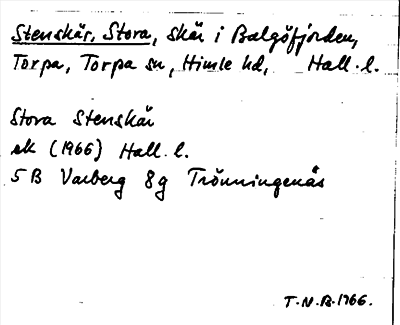 Stenskär, Stora, skär i Balgöfjorden,
Torpa, Torpa sn, Himle hd, Hall. l.
Stora Stenskär
ek (1966) Hall. l.
5 B Varberg 8g Trönningenäs
T.N.B. 1966.